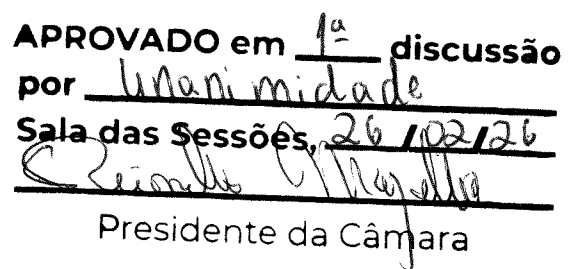 APROVADO em 1ª discussão
por Unanimidade
Sala das Sessões, 26/02/26
Presidente da Câmara